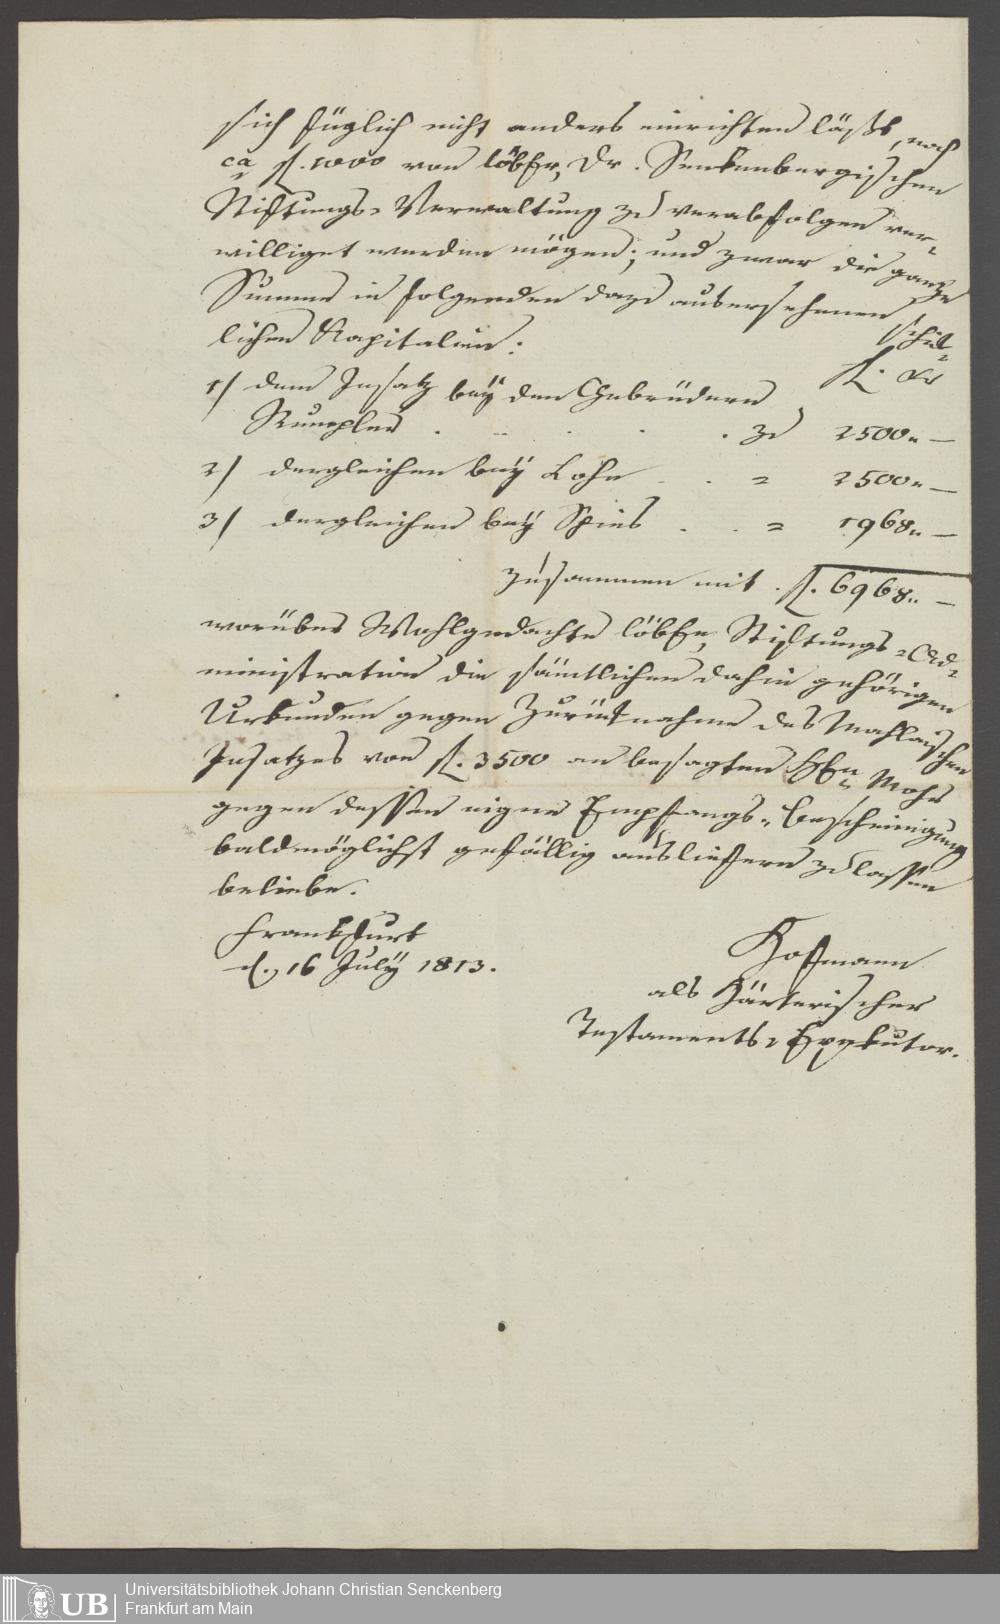 sich füglich nicht anders einrichten läßt, noch
ca fl. 1000 von löbler Dr. Senkenbergischen
Stiftungs-Verwaltung zu verabfolgen ver-
williget werden mögen; und zwar die ganze
Summe in folgenden dazu ausersehenen
lichen Kapitalien:
fl. xr
1/ dem Insatz bey den Gebrüdern
. . . . zu 2500 „ —
2/ dergleichen bey Lohn . . = 2500 „ —
3/ dergleichen bey Spies . . = 1968 „ —
zusammen mit . fl. 6968 „ —
worüber Wohlgedachte löble Stiftungs-Ad-
ministration die sämtlichen dahin gehörigen
Urkunden gegen Zurücknahme des
Insatzes von fl. 3500 an besagten Hrn Mohr
gegen dessen eigne Empfangs-Bescheinigung
baldmöglichst gefällig ausliefern zu lassen
beliebe.
Frankfurt
d. 16 July 1813.
Hofmann
als Härterischer
Testaments-Exekutor.
UB Universitätsbibliothek Johann Christian Senckenberg
Frankfurt am Main